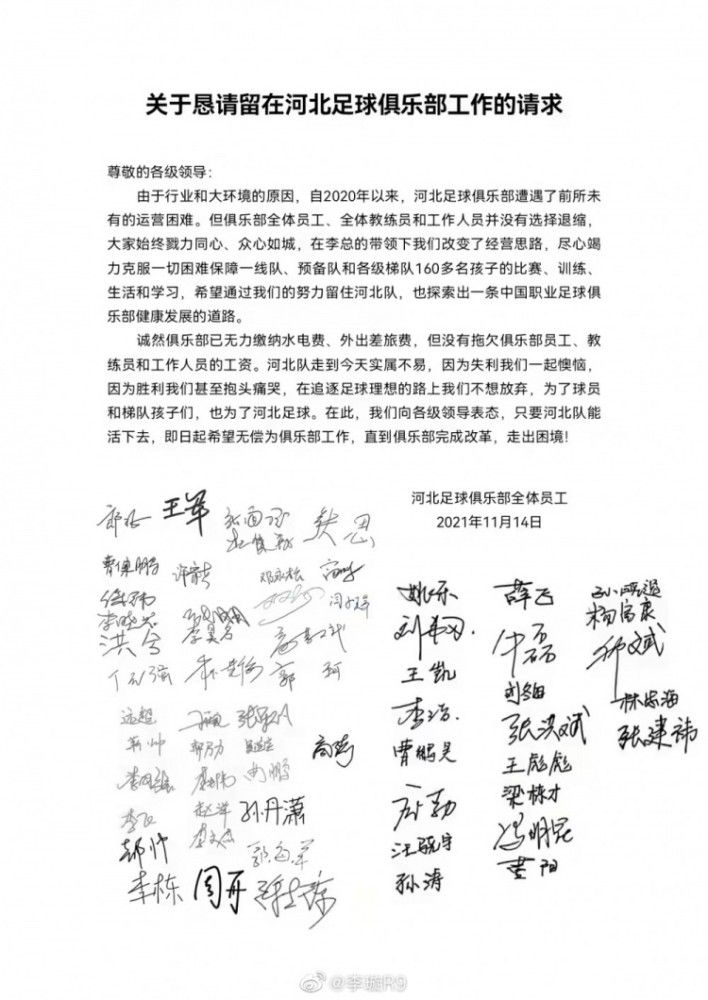 关于恳请留在河北足球俱乐部工作的请求
尊敬的各级领导：
由于行业和大环境的原因，自2020年以来，河北足球俱乐部遭遇了前所未
有的运营困难。但俱乐部全体员工、全体教练员和工作人员并没有选择退缩，
大家始终戮力同心、众心如城，在李总的带领下我们改变了经营思路，尽心竭
力克服一切困难保障一线队、预备队和各级梯队160多名孩子的比赛、训练、
生活和学习，希望通过我们的努力留住河北队，也探索出一条中国职业足球俱
乐部健康发展的道路。
诚然俱乐部已无力缴纳水电费、外出差旅费，但没有拖欠俱乐部员工、教
练员和工作人员的工资。河北队走到今天实属不易，因为失利我们一起懊恼，
因为胜利我们甚至抱头痛哭，在追逐足球理想的路上我们不想放弃，为了球员
和梯队孩子们，也为了河北足球。在此，我们向各级领导表态，只要河北队能
活下去，即日起希望无偿为俱乐部工作，直到俱乐部完成改革，走出困境！
河北足球俱乐部全体员工
2021年11月14日
王军
姚乐 薛飞
杨富康
洪兮
王凯
郭珂
李浩 张洪斌 林忠海
曹鹏昊 张建祎
高嵩
王彪彪
梁栋才
孙丹潇
汪晓宇 冯明昆
郝帅
孙涛 董阳
李栋 周开
@李璇R9